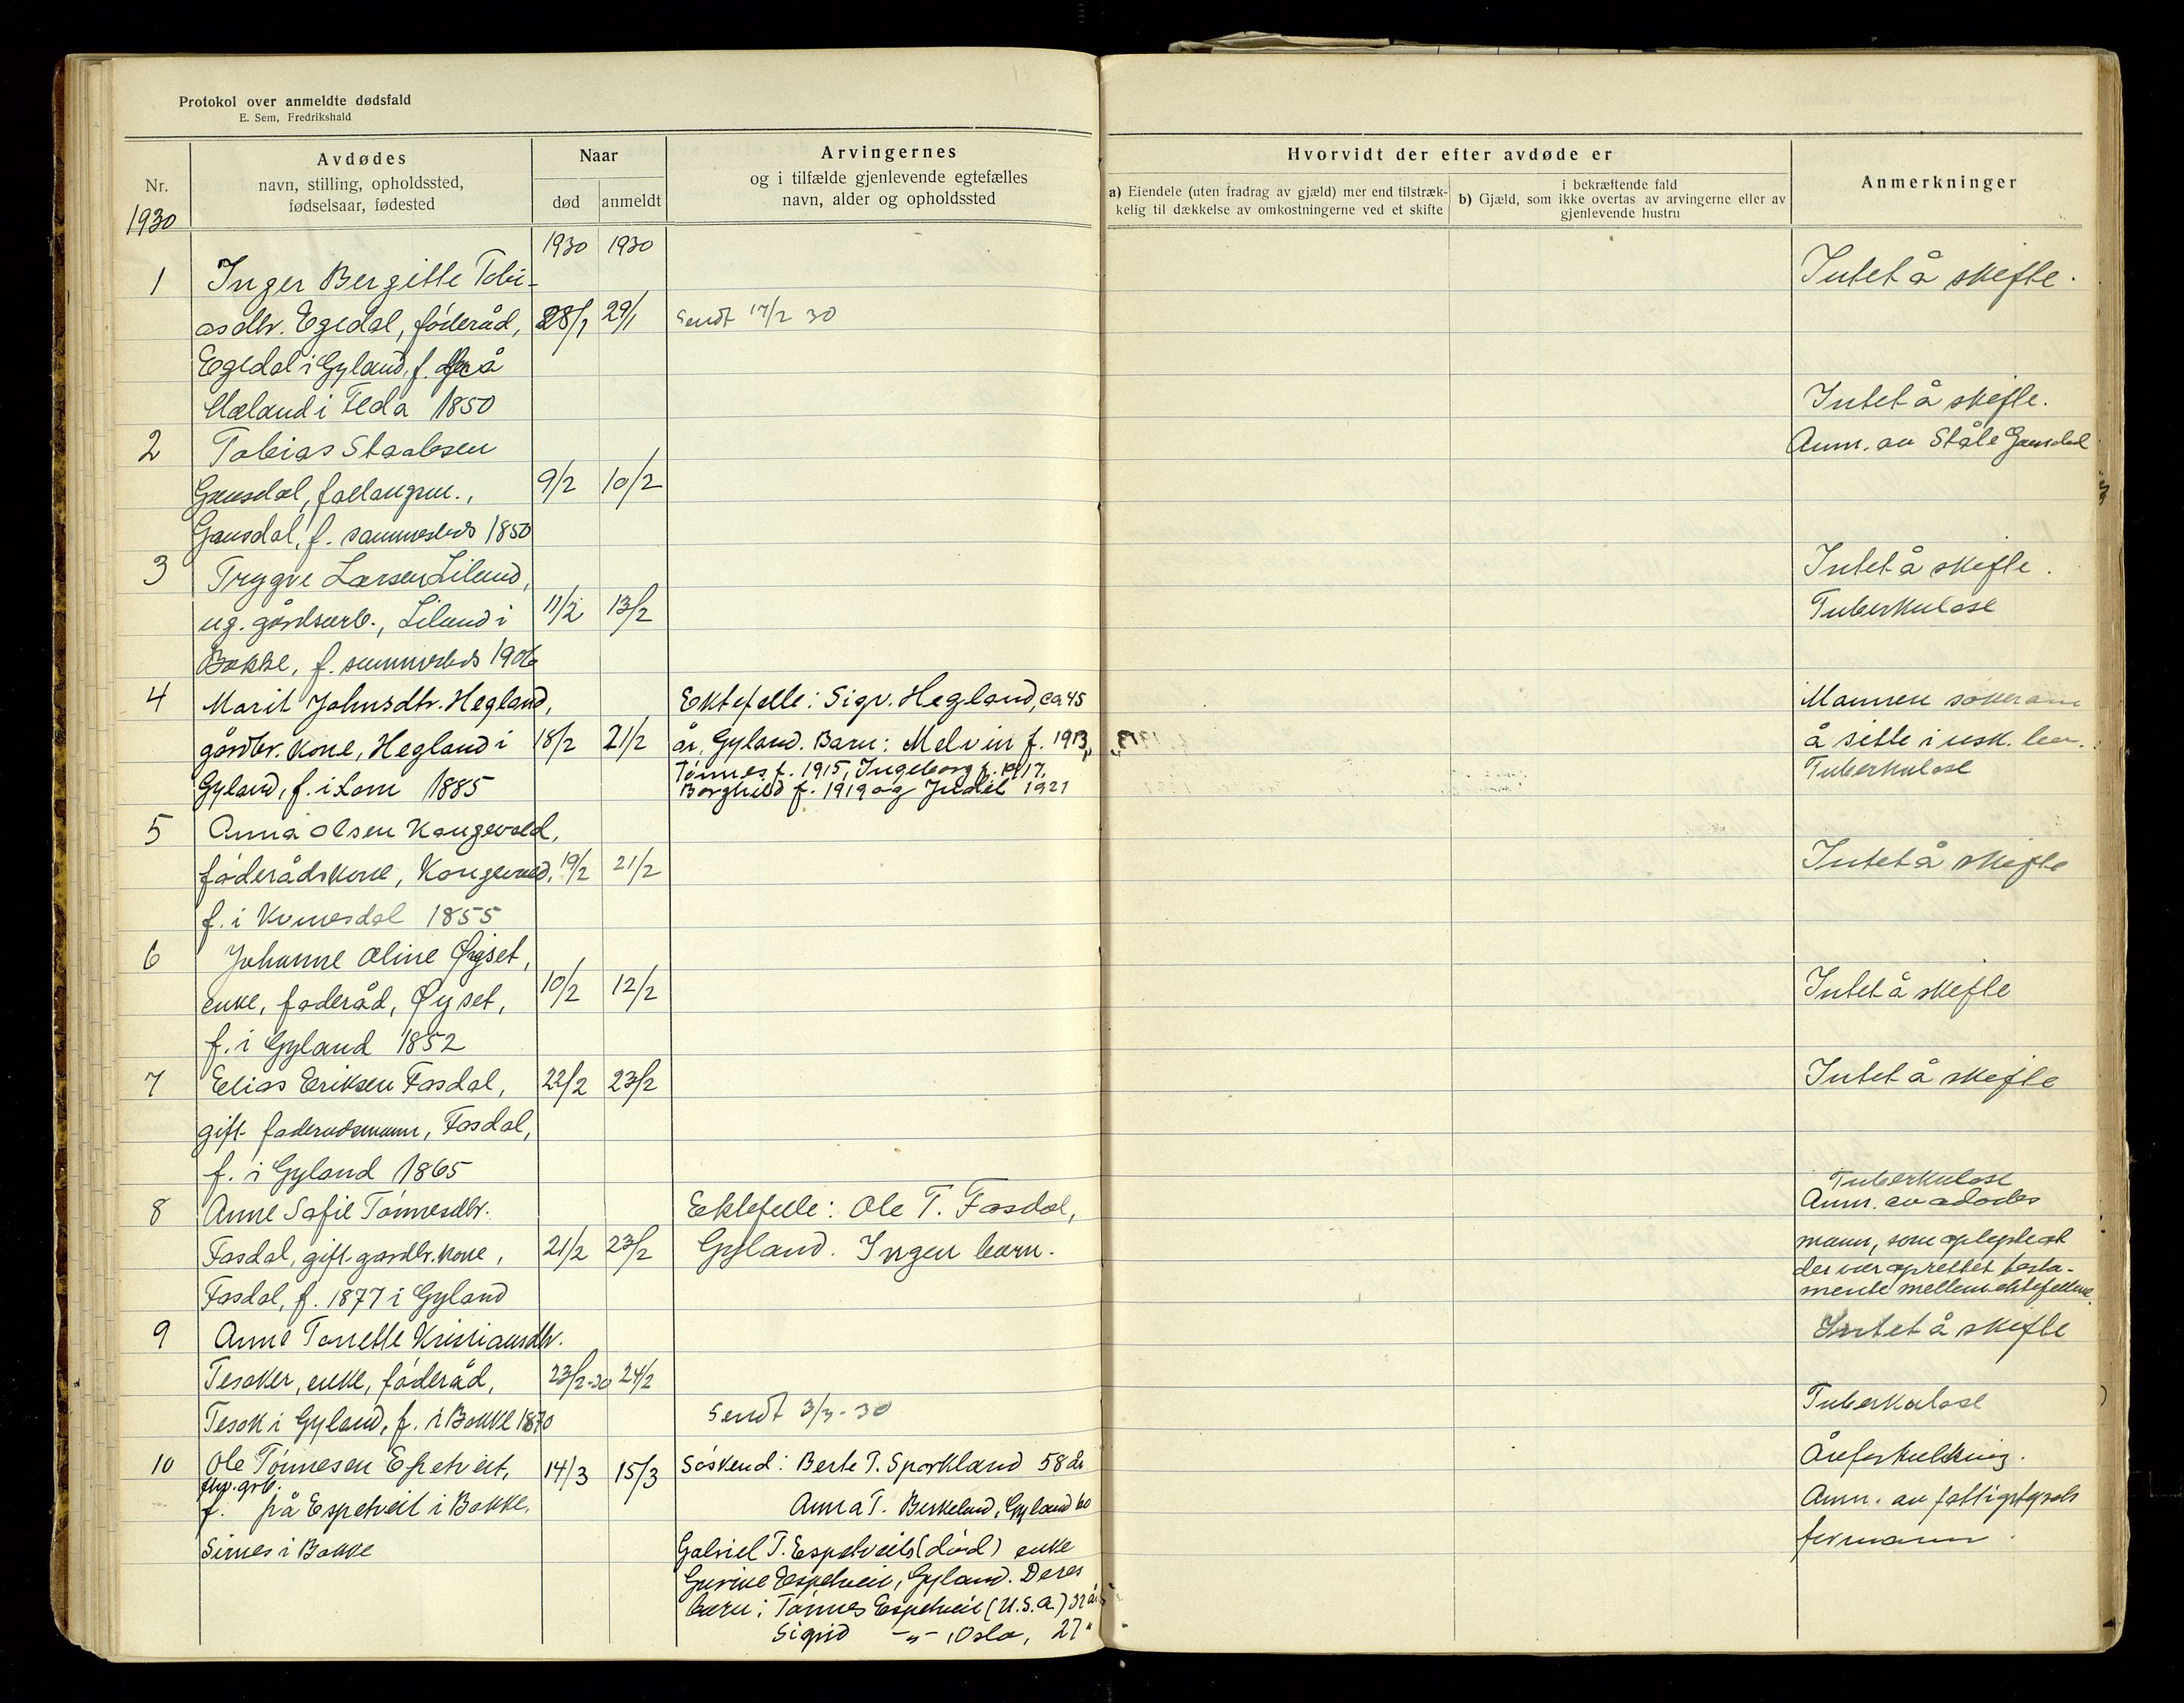 Protokol over anmeldte dødsfald
E. Sem, Fredrikshald
Nr.
1930
Avdødes
navn, stilling, opholdssted,
fødselsaar, fødested
Naar
død
anmeldt
Arvingernes
og i tilfælde gjenlevende egtefælles
navn, alder og opholdssted
Hvorvidt der efter avdøde er
a) Eiendele (uten fradrag av gjæld) mer end tilstræk-
kelig til dækkelse av omkostningerne ved et skifte
i bekræftende fald
b) Gjæld, som ikke overtas av arvingerne eller av
gjenlevende hustru
Anmerkninger
1930 1930
1 Inger Bergitte Tobi- Intet å skifte.
asdtr. Egedal, føderåd, 28/1 29/1 Sendt 17/2 30
Egedal i Gyland, f. på
Mæland i Feda 1850 Intet å skifte.
2 Tobias Staalesen Anm. av Ståle Gausdal
Gausdal, , 9/2 10/2
Gausdal, f. sammesteds 1850
3 Trygve Larsen Liland, Intet å skifte.
ug. gårdsarb., Liland i 11/2 13/2 Tuberkulose
Bakke, f. sammesteds 1906
4 Marit Johnsdtr. Hegland, Ektefelle: Sigv. Hegland, ca 45 Mannen søker om
gårdbr. kone, Hegland i 18/2 21/2 år, Gyland. Barn: Melvin f. 1913, å sitte i usk. bo.
Tønnes f. 1915, Ingeborg f. 1917, Tuberkulose
Gyland, f. i Lom 1885 Borghild f. 1919 og 1921
5 Anna Olsen Kongevold,
føderådskone, Kongevold, 19/2 21/2 Intet å skifte
f. i Kvinesdal 1855
6 Johanne Oline Øyset,
enke, føderåd, Øyset, 10/2 12/2 Intet å skifte
f. i Gyland 1852
7 Elias Eriksen Fosdal, 22/2 23/2 Intet å skifte
gift føderådsmann, Fosdal,
f. i Gyland 1865
Tuberkulose
8 Anne Sofie Tønnesdtr. Ektefelle: Ole T. Fosdal, Anm. av avdødes
Fosdal, gift gårdbr. kone, 21/2 23/2 Gyland. Ingen barn. mann, som oplyste at
der var oprettet testa-
Fosdal, f. 1877 i Gyland mente mellem ektefellene.
9 Anne Tonette Kristiansdtr. Intet å skifte
Tesaker, enke, føderåd, 23/2-30 24/2
Tesak i Gyland, f. i Bakke 1870 Sendt 3/3-30 Tuberkulose
10 Ole Tønnesen Espetveit, 14/3 15/3 Søskend: Berte T. Sporkland 58 år Åreforkalkning.
f. på Espetveit i Bakke. Anna T. Birkeland, Gyland 60 Anm. av fattigstyrets
Sirnes i Bakke Gabriel T. Espetveits (død) enke formann.
Gurine Espetveit, Gyland. Deres
barn: Tønnes Espetveit (U.S.A.) 32 år
Sigrid -"- , Oslo, 27 "